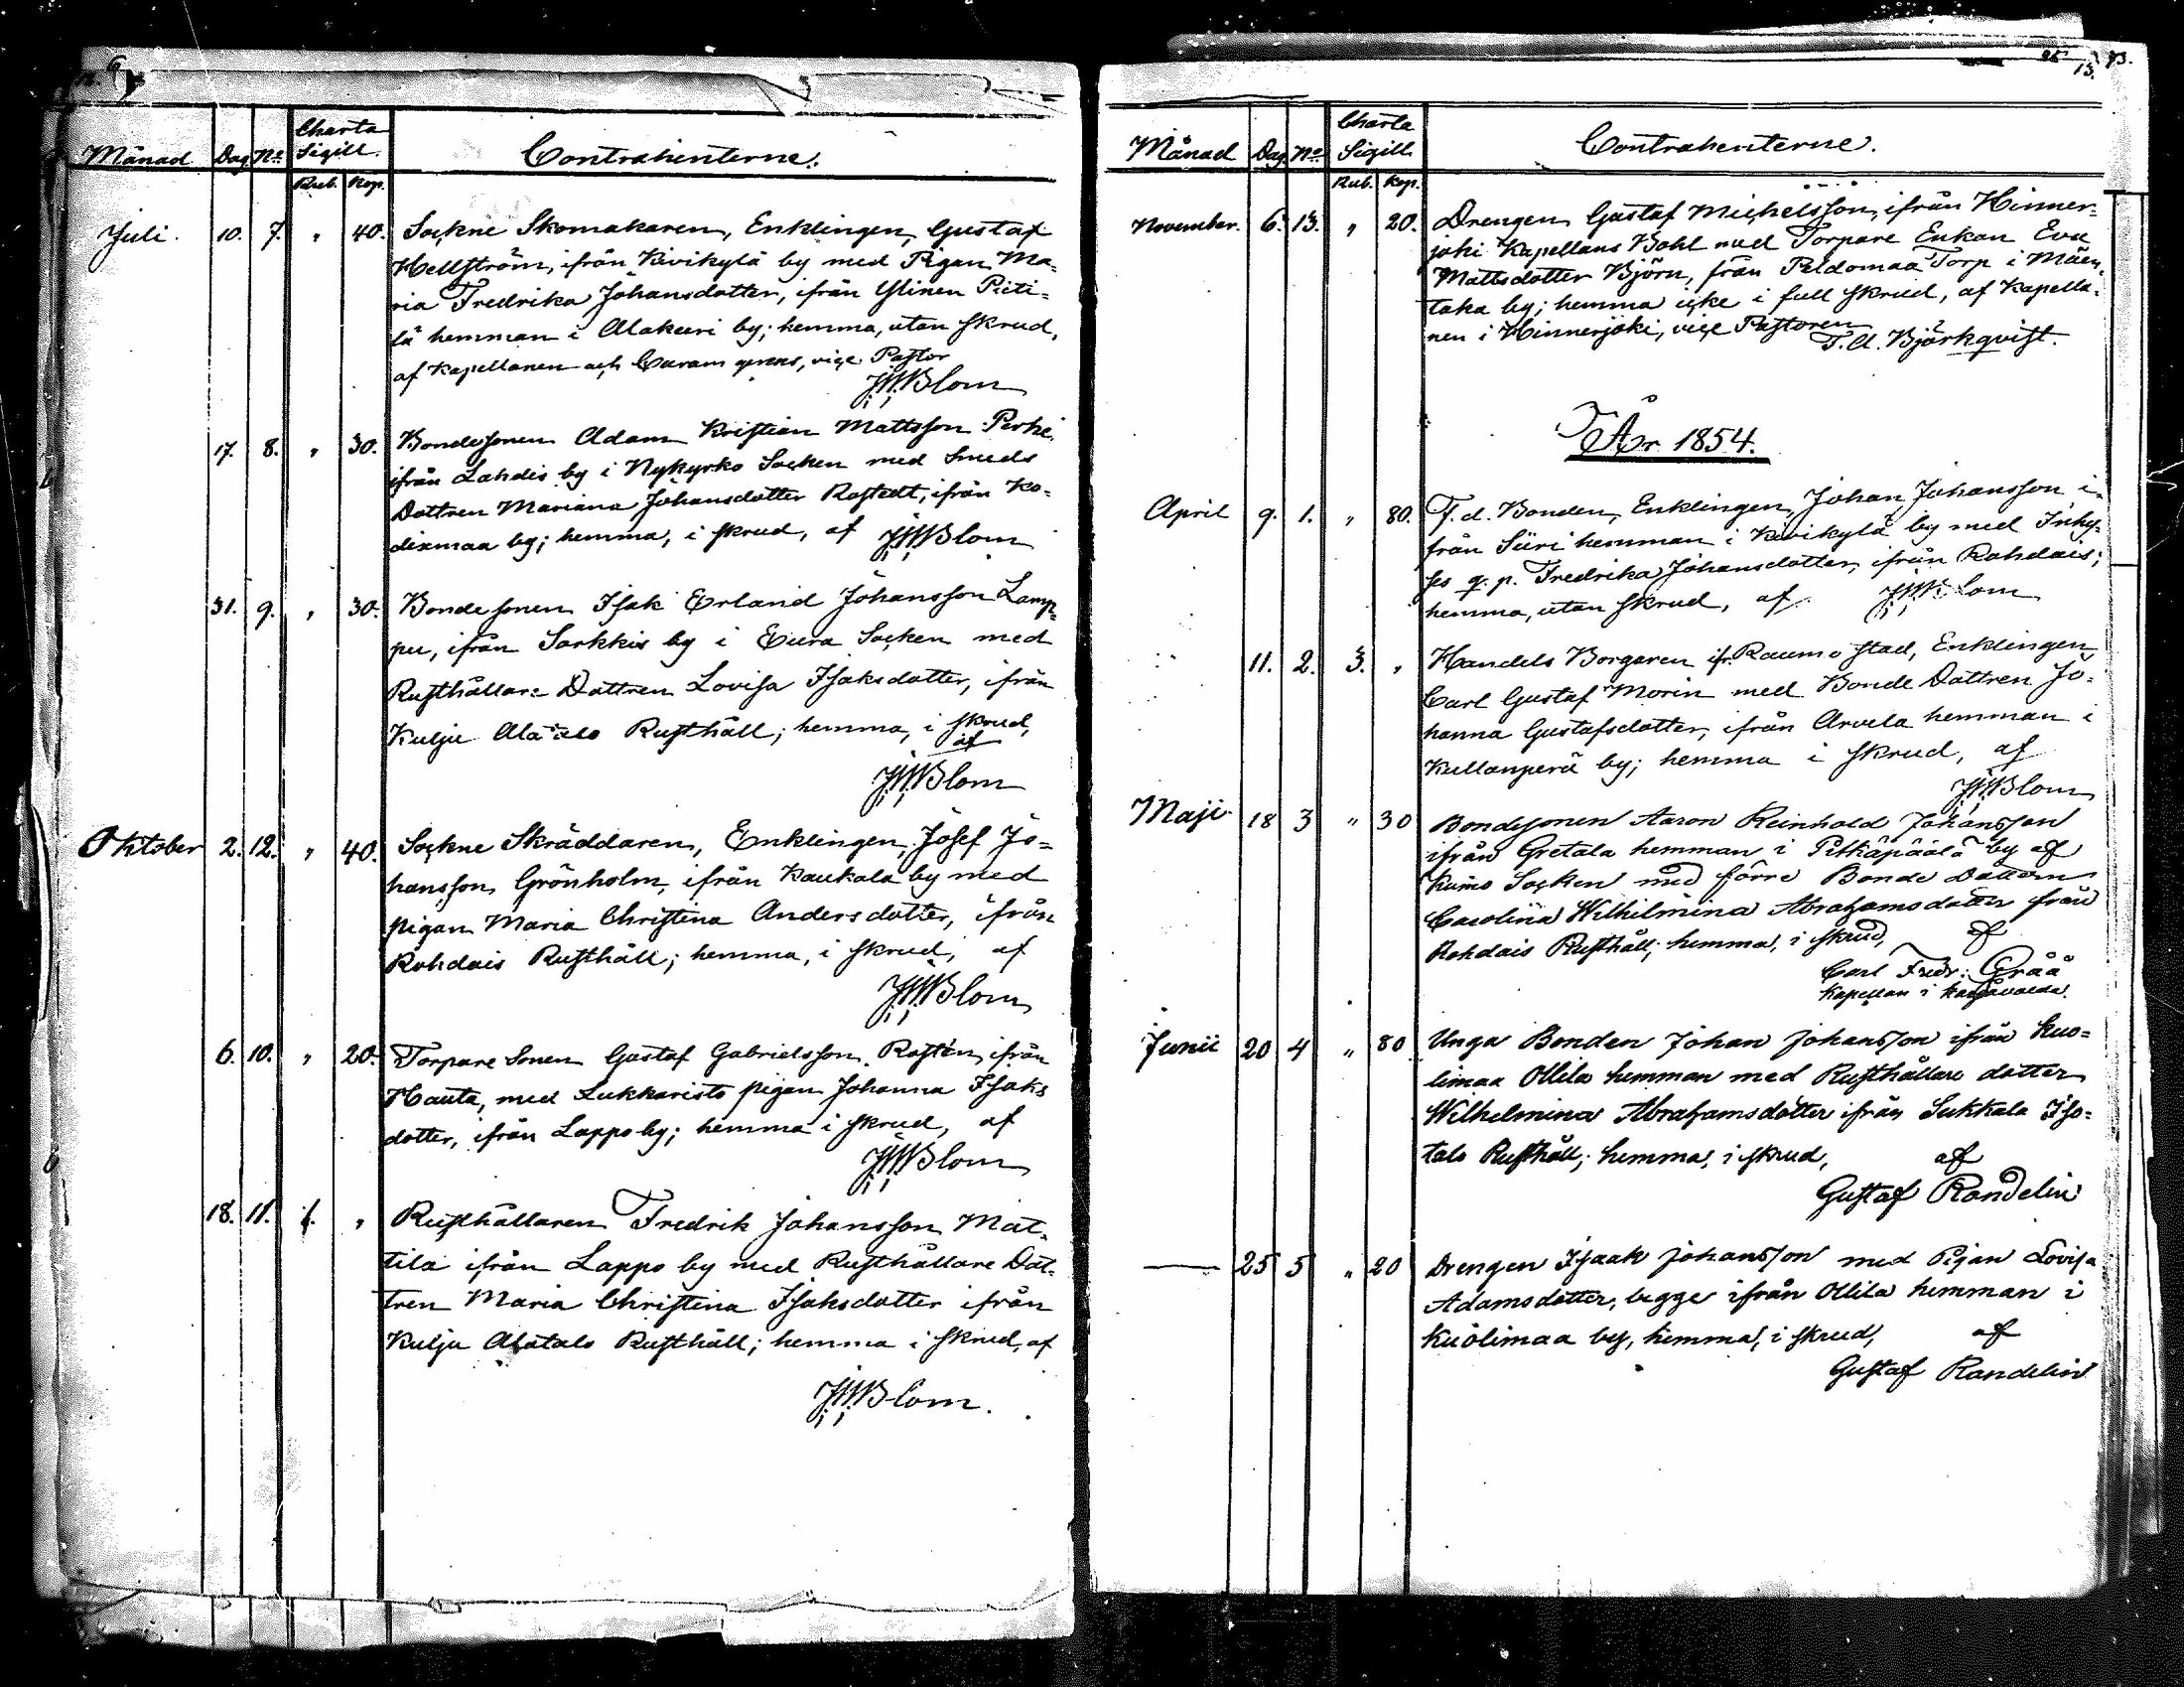 Månad Dag No Charta Sigill. Contrahenterne.
Rub. Kop.
Juli. 10. 7. " 40. Sockne Skomakaren, Enklingen, Gustaf
Hellström, ifrån Kivikylä by med Pigan Ma-
ria Fredrika Johansdotter, ifrån Ylinen Pieti-
lä hemman i Alakeeri by; hemma, utan skrud,
af Kapellanen och Curam gerens, vice Pastor
JWBlom
17. 8. " 30. Bondesonen Adam Kristian Mattsson Perke,
ifrån Lahdis by i Nykyrko Socken med Smeds
Dottren Mariana Johansdotter Rostedt, ifrån Ko-
dixmaa by; hemma, i skrud, af JWBlom
31. 9. " 30. Bondesonen Isak Erland Johansson Lamp-
pu, ifrån Sorkkis by i Eura Socken med
Rusthållare Dottren Lovisa Isaksdotter, ifrån
Kulju Alatalo Rusthåll; hemma, i skrud,
af
JWBlom
Oktober 2. 12. " 40. Sockne Skräddaren, Enklingen, Josef Jo-
hansson Grönholm, ifrån Kaukola by med
pigan Maria Christina Andersdotter, ifrån
Rohdais Rusthåll; hemma, i skrud, af
JWBlom
6. 10. " 20. Torpare Sonen Gustaf Gabrielsson Rostén, ifrån
Hauta, med Lukkaristo pigan Johanna Isaks
dotter, ifrån Lappo by; hemma i skrud, af
JWBlom
18. 11. 1. " Rusthållaren Fredrik Johansson Mat-
tila ifrån Lappo by med Rusthållare Dot-
tren Maria Christina Isaksdotter ifrån
Kulju Alatalo Rusthåll; hemma i skrud, af
JWBlom.
13.
Månad Dag No Charta Sigill. Contrahenterne.
Rub. Kop.
November. 6. 13. " 20. Drengen Gustaf Michelsson, ifrån Hinner-
joki Kapellans Bohl med Torpare Enkan Eva
Mattsdotter Björn, från Peldomaa Torp i Mäen-
taka by; hemma icke i full skrud, af Kapella-
nen i Hinnerjoki, vice Pastoren
T.A. Björkqvist.
År 1854.
April 9. 1. " 80. F.d. Bonden, Enklingen, Johan Johansson i-
från Siiri hemman i Kivikylä by med Inhy-
ses q.p. Fredrika Johansdotter, ifrån Rohdais;
hemma, utan skrud, af JWBlom
11. 2. 3. " Handels Borgaren ifr. Raumo stad, Enklingen
Carl Gustaf Morin med Bonde Dottren Jo-
hanna Gustafsdotter, ifrån Arvela hemman i
Kullanperä by; hemma i skrud, af
JWBlom
Maji 18 3 " 30 Bondesonen Aaron Reinhold Johansson
ifrån Gretala hemman i Pitkäpäälä by af
Kumo Socken med förre Bonde Dottern
Carolina Wilhilmina Abrahamsdotter från
Rohdais Rusthåll; hemma, i skrud, af
Carl Fredr: Gråå
Kapellan i
Junii 20 4 " 80 Unga Bonden Johan Johansson ifrån Kuo-
limaa Ollila hemman med Rusthållare dotter
Wilhelmina Abrahamsdotter ifrån Sukkala Iso-
talo Rusthåll; hemma, i skrud, af
Gustaf Randelin
— 25 5 " 20 Drengen Isaak Johansson med Pigan Lovisa
Adamsdotter, begge ifrån Ollila hemman i
Kuolimaa by, hemma, i skrud, af
Gustaf Randelin